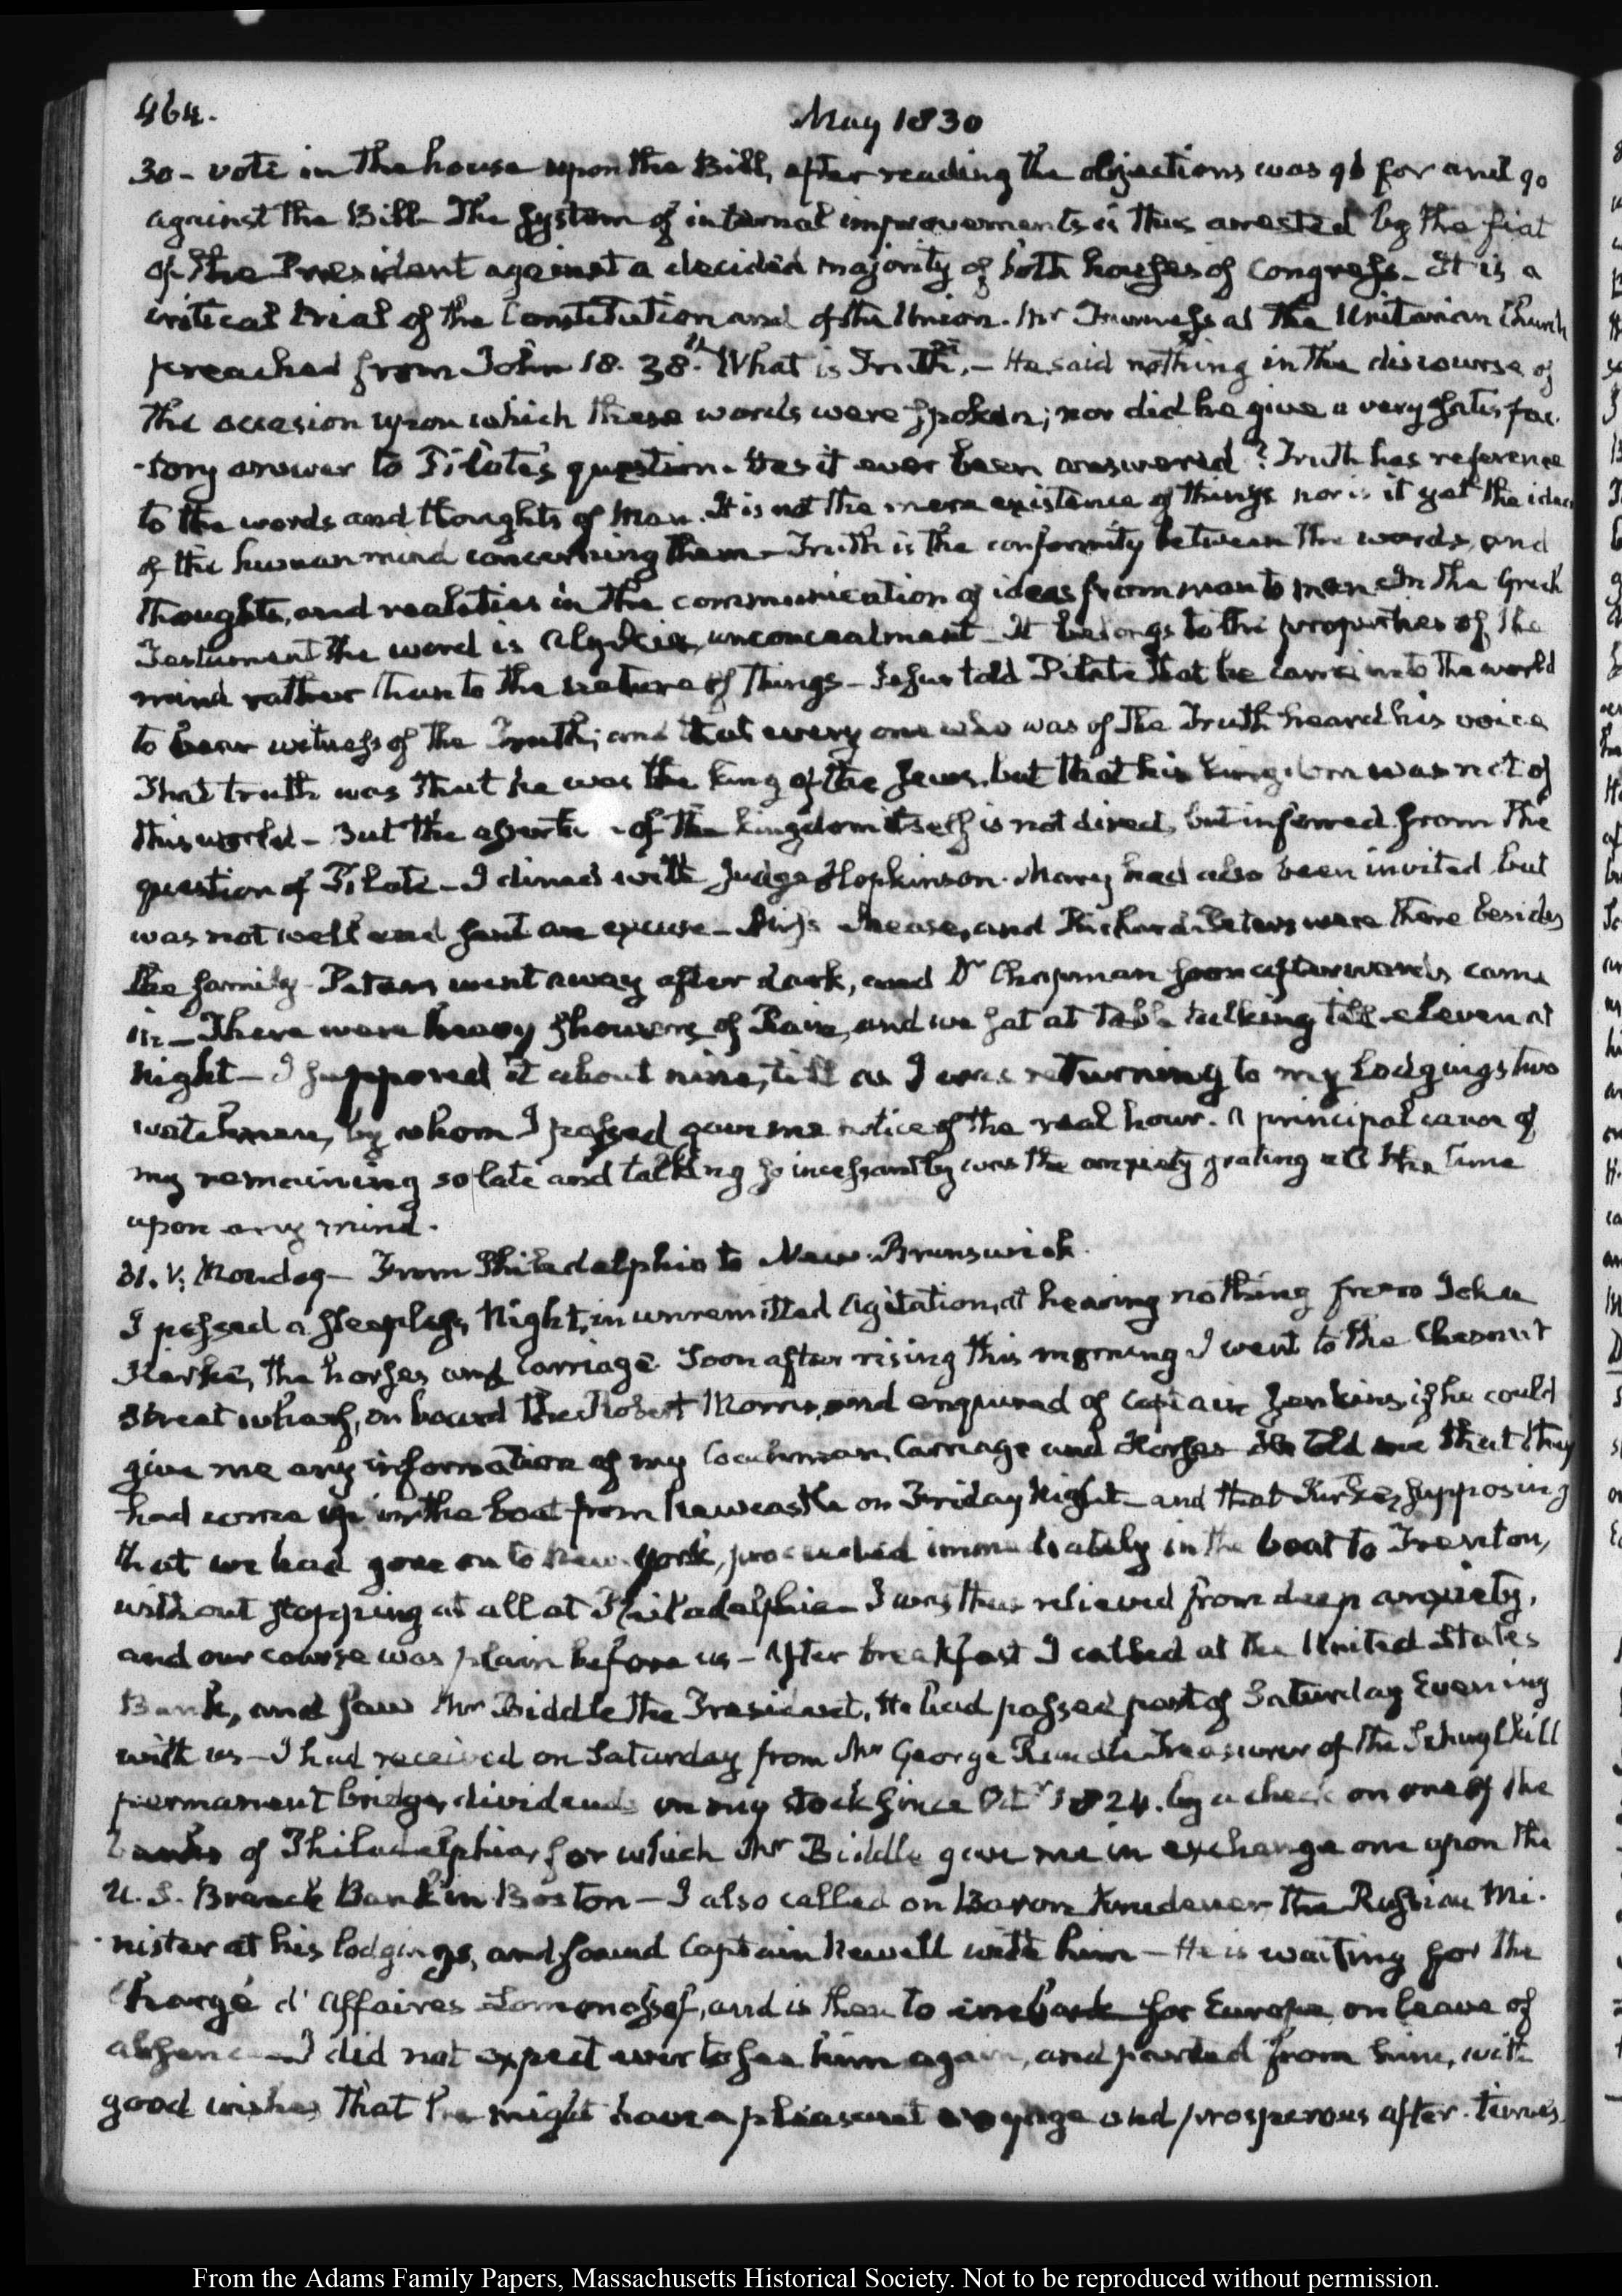 464.
May 1830
30 - vote in the house upon the Bill, after reading the objections was 96 for and 90
against the Bill - The System of internal improvements is thus arrested by the fiat
of the President against a decided majority of both houses of Congress - It is a
critical trial of the Constitution and of the Union. Mr Furness at the Unitarian Church
preached from John 18. 38. "What is Truth", - He said nothing in the discourse of
the occasion upon which these words were spoken; nor did he give a very satisfac-
-tory answer to Pilate's question. Has it ever been answered? Truth has reference
to the words and thoughts of Man. It is not the mere existence of things nor is it yet the ideas
of the human mind concerning them - Truth is the conformity between the words, and
thoughts, and realities in the communication of ideas from man to man. In the Greek
Testament the word is αληθεια, unconcealment - It belongs to the properties of the
mind rather than to the nature of things - Jesus told Pilate that he came into the world
to bear witness of the Truth; and that every one who was of the Truth heard his voice
That truth was that he was the king of the Jews, but that his kingdom was not of
this world - But the of the kingdom itself is not direct, but inferred from the
question of Pilate - I dined with Judge Hopkinson. Mary had also been invited but
was not well and sent an excuse - Miss Mease, and Richard Peters were there besides
the family - Peters went away after dark, and Dr Chapman soon afterwards came
in - There were heavy showers of Rain, and we sat at table talking till eleven at
night - I supposed it about nine, till as I was returning to my Lodgings two
watchmen, by whom I passed gave me notice of the real hour. A principal cause of
my remaining so late and talking so incessantly was the anxiety grating all the time
upon my mind.
31. V. Monday - From Philadelphia to New-Brunswick.
I passed a sleepless Night, in unremitted agitation, at hearing nothing from John
Kirke, the horses and carriage. Soon after rising this morning I went to the Chesnut
Street wharf, on board the Robert Morris, and enquired of Captain Jenkins, if he could
give me any information of my Coachman, Carriage and Horses - He told me that they
had come up in the boat from Newcastle on Friday Night - and that Kirke, supposing
that we had gone on to New-York, proceeded immediately in the boat to Trenton,
without stopping at all at Philadelphia - I was thus relieved from deep anxiety,
and our course was plain before us - After breakfast I called at the United States
Bank, and saw Mr Biddle the President. He had passed part of Saturday Evening
with us - I had received on Saturday from Mr George Rundle Treasurer of the Schuylkill
permanent bridge, dividends on my stock since Octr 1824. by a check on one of the
banks of Philadelphia, for which Mr Biddle gave me in exchange one upon the
U. S. Branch Bank in Boston - I also called on Baron Krudener the Russian Mi-
-nister at his lodgings, and found Captain Newell with him - He is waiting for the
Chargé d'Affaires Lomonossof, and is then to embark for Europe, on leave of
absence - I did not expect ever to see him again, and parted from him, with
good wishes that he might have a pleasant voyage and prosperous after-times
From the Adams Family Papers, Massachusetts Historical Society. Not to be reproduced without permission.